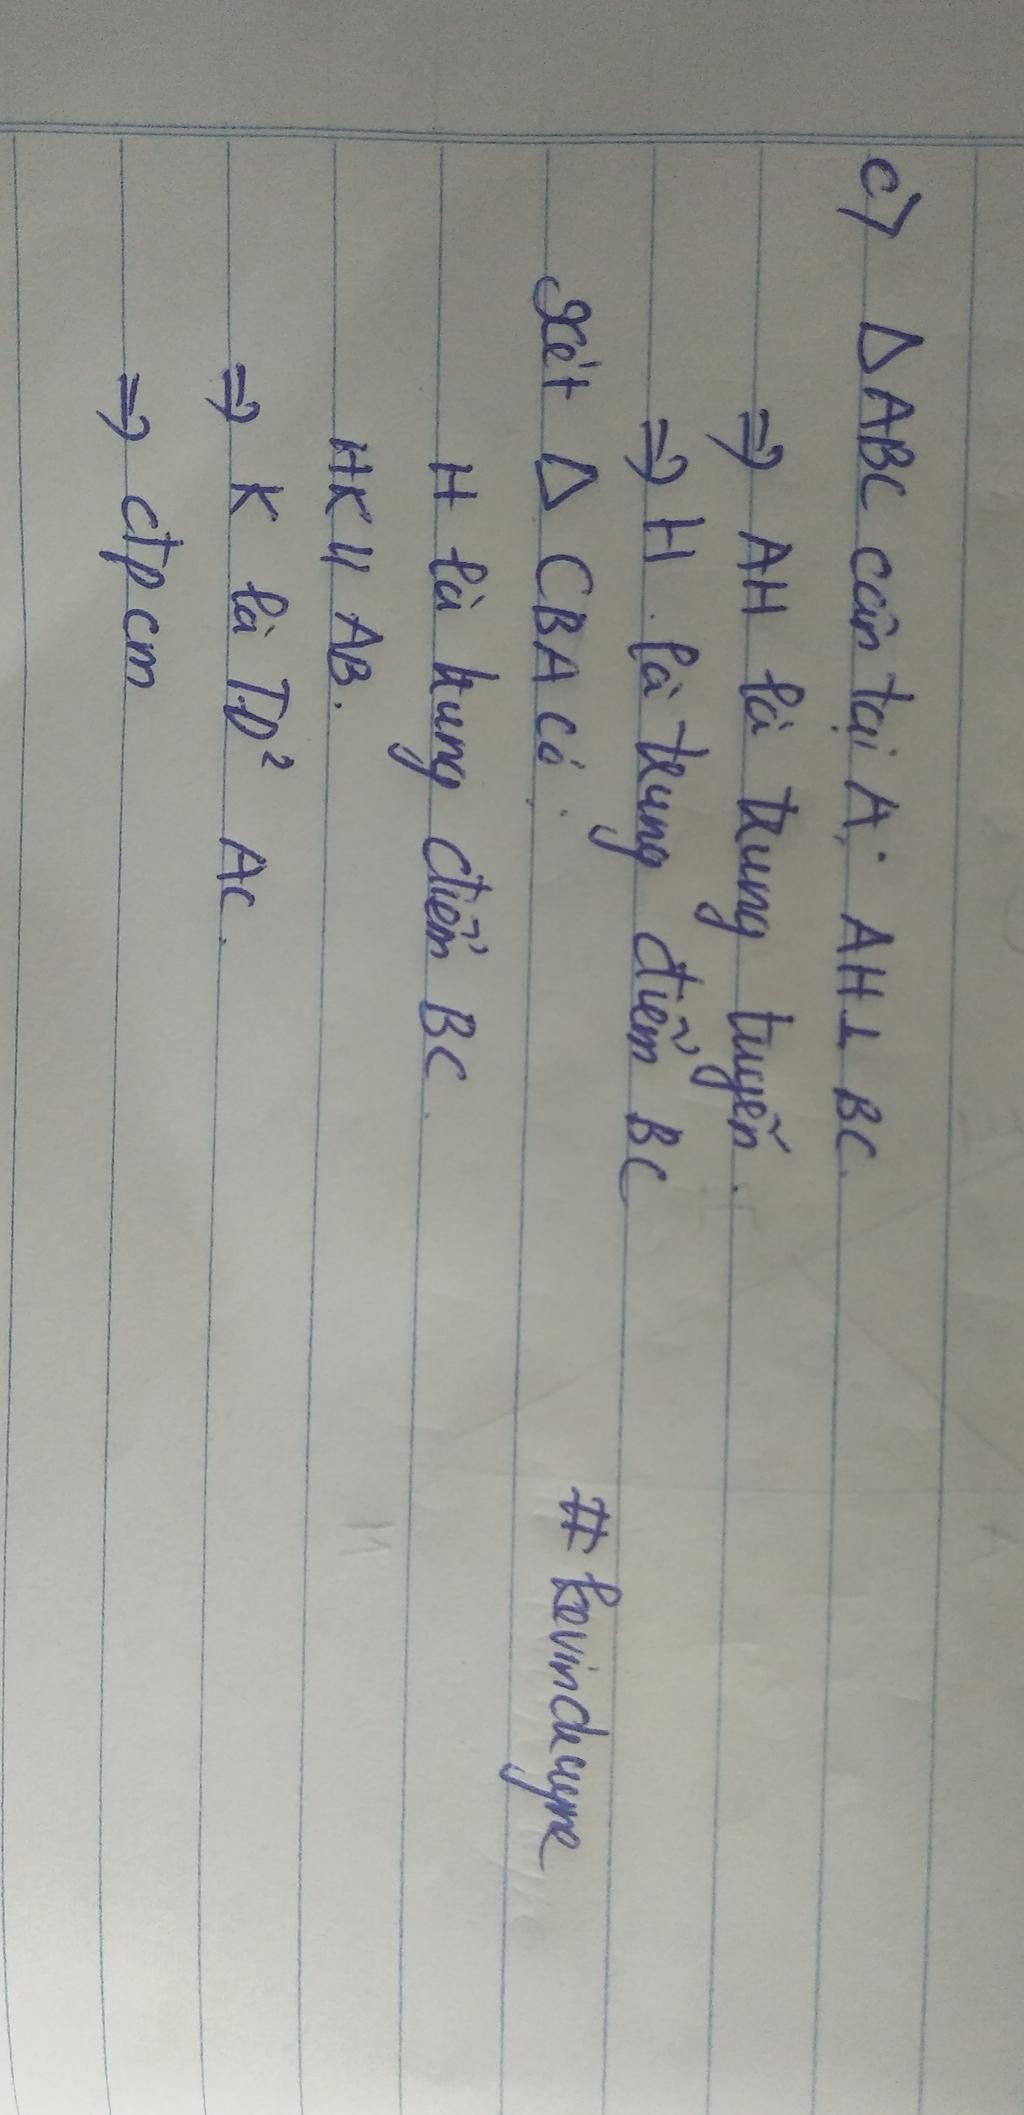 c) ΔABC cân tại A; AH⊥ BC.
⇒ AH là trung tuyến.
⇒ H là trung điểm BC
Xét Δ CBA có:
H là trung điểm BC.
HK // AB.
⇒ K là TĐ² AC.
⇒ đpcm
# kevinduyne